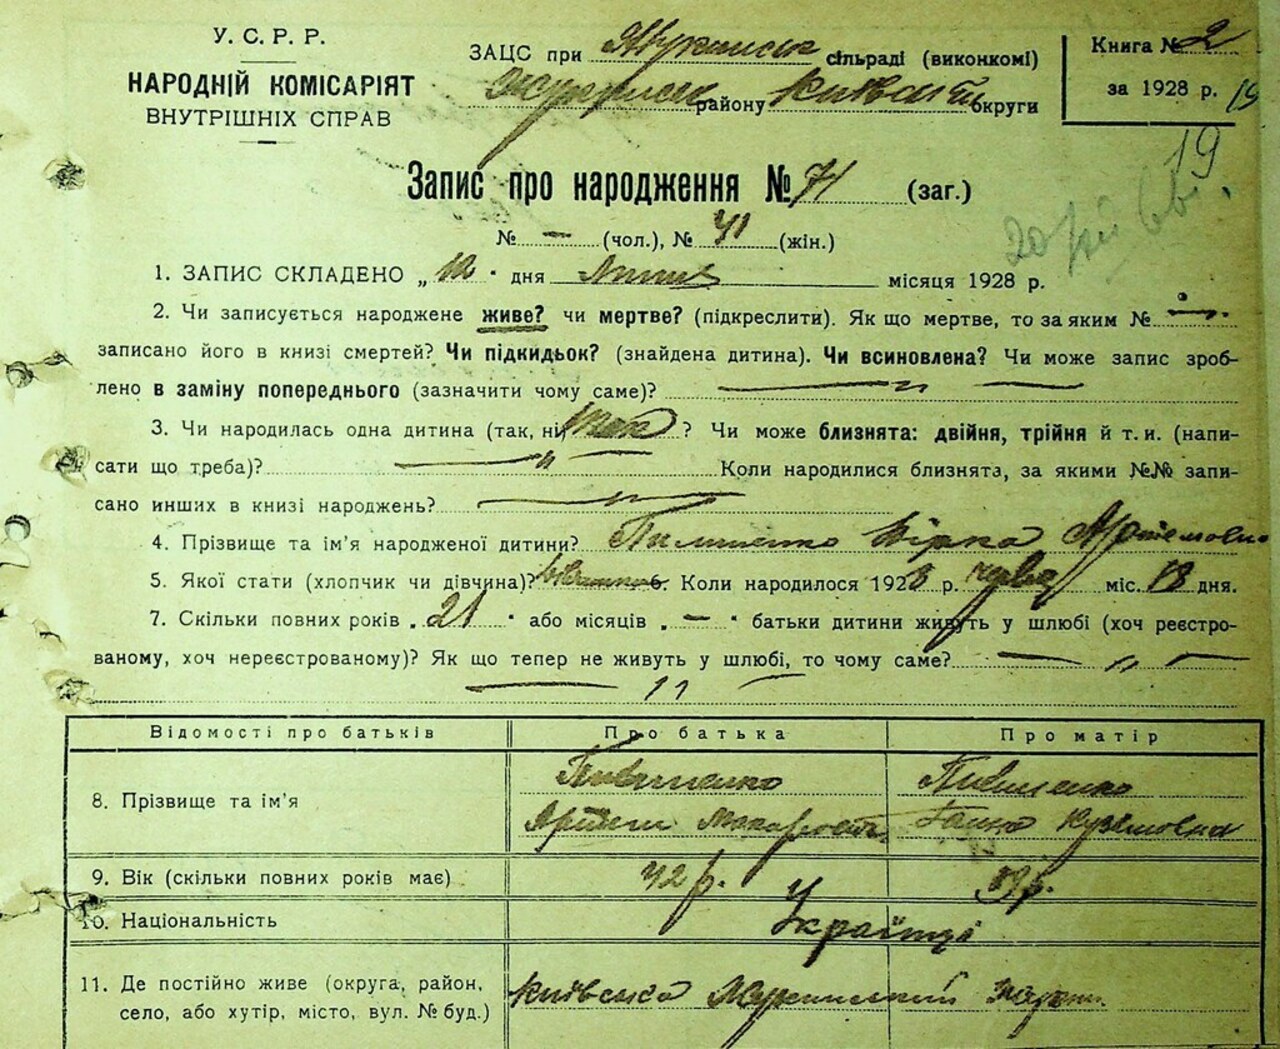 У. С. Р. Р.
НАРОДНІЙ КОМІСАРІЯТ
ВНУТРІШНІХ СПРАВ
ЗАЦС при сільраді (виконкомі)
району округи
Книга № 2
за 1928 р.
19
Запис про народження № 71 (заг.)
№ — (чол.), № 41 (жін.)
1. ЗАПИС СКЛАДЕНО „ 12 " дня місяця 1928 р.
2. Чи записується народжене живе? чи мертве? (підкреслити). Як що мертве, то за яким №
записано його в книзі смертей? Чи підкидьок? (знайдена дитина). Чи всиновлена? Чи може запис зроб-
лено в заміну попереднього (зазначити чому саме)?
3. Чи народилась одна дитина (так, ні) так ? Чи може близнята: двійня, трійня й т. и. (напи-
сати що треба)? Коли народилися близнята, за якими №№ запи-
сано инших в книзі народжень?
4. Прізвище та ім'я народженої дитини? Вірка Артемовна
5. Якої стати (хлопчик чи дівчина)? 6. Коли народилося 1928 р. міс. 18 дня.
7. Скільки повних років „ 21 " або місяців „ — " батьки дитини живуть у шлюбі (хоч реєстро-
ваному, хоч нереєстрованому)? Як що тепер не живуть у шлюбі, то чому саме?
Відомості про батьків Про батька Про матір
8. Прізвище та ім'я
Артем Макарович Ганна Кузьмовна
9. Вік (скільки повних років має) 42 р. 39 р.
10. Національність Українці
11. Де постійно живе (округа, район,
село, або хутір, місто, вул. № буд.) Київська район